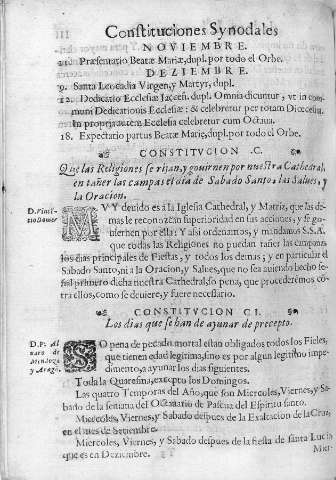 III Constituciones Synodales
NOVIEMBRE.
21. Præsentatio Beatæ Mariæ, dupl. por todo el Orbe.
DEZIEMBRE.
9. Santa Leocadia Virgen, y Martyr, dupl.
12. Dedicatio Ecclesiæ Jaccen. dupl. Omnia dicuntur, vt in com-
muni Dedicationis Ecclesiæ: & celebretur per totam Dioecesim
In propria autem Ecclesia celebretur cum Octaua.
18. Expectatio partus Beatæ Mariæ, dupl. por todo el Orbe.
CONSTITVCION .C.
Que las Religiones se rijan, y gouiernen por nuestra Cathedral,
en tañer las campas el dia de Sabado Santo: las Salues, y
la Oracion.
D. Vinci-
MVY deuido es â la Iglesia Cathedral, y Matriz, que las de-
mas le reconozcan superioridad en sus acciones, y se go-
uiernen por ella: Y assi ordenamos, y mandamos S.S.A.
que todas las Religiones no puedan tañer las campanas
los dias principales de Fiestas, y todos los demas; y en particular el
Sabado Santo, ni a la Oracion, y Salues, que no sea auiendo hecho se-
ñal primero dicha nuestra Cathedral, so pena, que procederêmos cô-
tra ellos, como se deuiere, y fuere necessario.
CONSTITVCION CI.
Los dias que se han de ayunar de precepto.
D. P. Al
uaro de
Mendoza
y Aragõ.
SO pena de pecado mortal estan obligados todos los Fieles,
que tienen edad legitima, sino es por algun legitimo impe-
dimento, a ayunar los dias siguientes.
Toda la Quaresma, excepto los Domingos.
Las quatro Temporas del Año, que son Miercoles, Viernes, y Sa-
bado de la semana del Octauario de Pascua del Espiritu santo.
Miercoles, Viernes, y Sabado despues de la Exaltacion de la Cruz,
en el mes de Setiembre.
Miercoles, Viernes, y Sabado despues de la fiesta de santa Lucia
que es en Deziembre.
Mier-